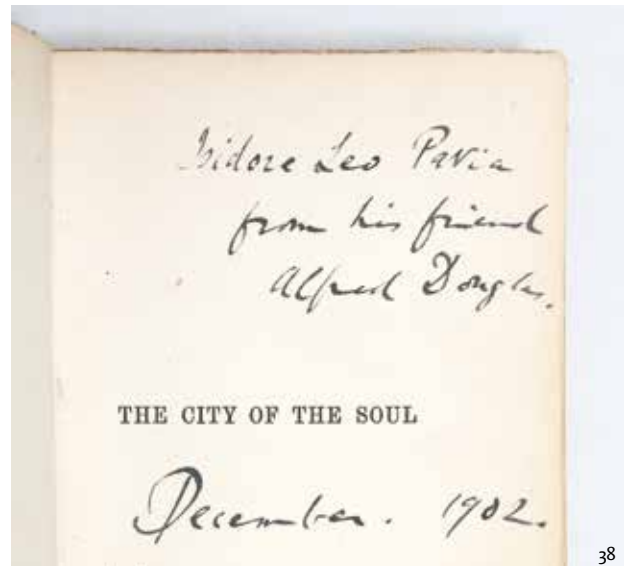 Isidore Leo Pavia
from his friend
Alfred Douglas.
THE CITY OF THE SOUL
December. 1902.
38